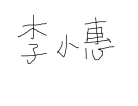 李小惠